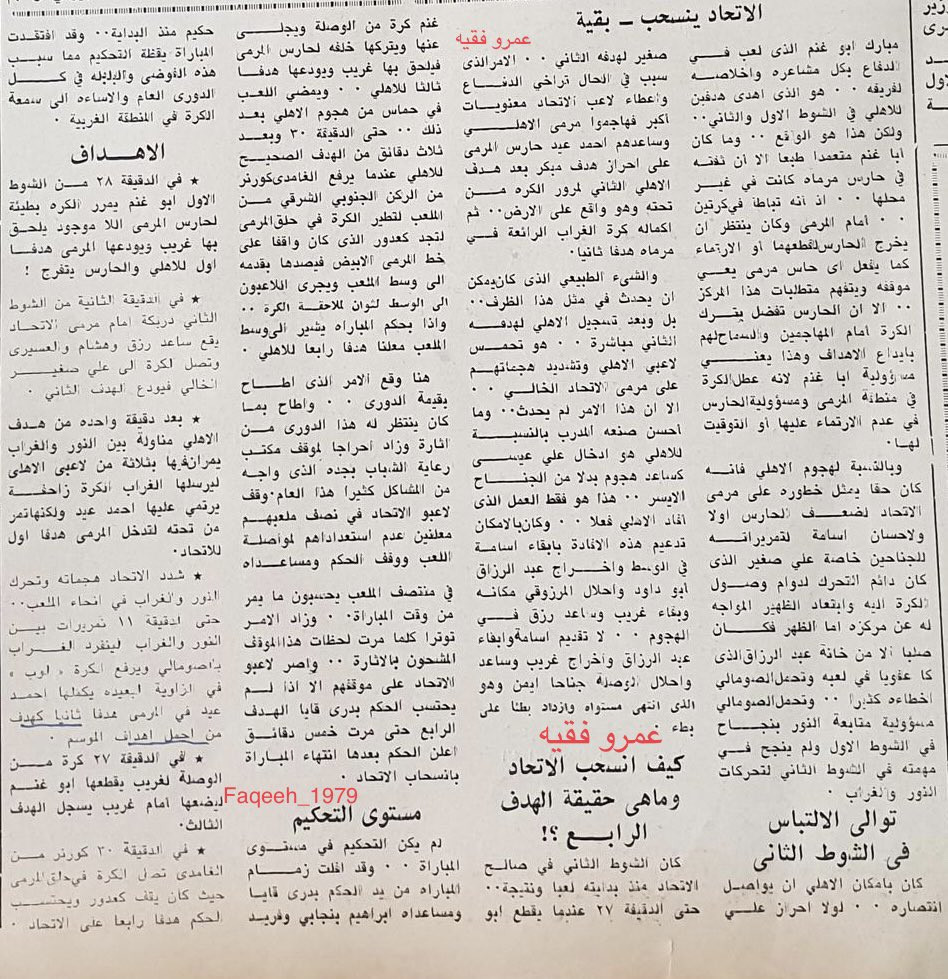 الاتحاد ينسحب ــ بقية
عمرو فقيه
مبارك ابو غنم الذى لعب فى
الدفاع بكل مشاعره واخلاصه
لفريقه ٠٠ هو الذى اهدى هدفين
للاهلي في الشوط الاول والثاني٠٠
ولكن هذا هو الواقع ٠٠ وما كان
أبا غنم متعمدا طبعا الا أن ثقته
في حارس مرماه كانت في غير
محلها ٠٠ اذ أنه تباطأ في كرتين
٠٠ أمام المرمى وكان ينتظر ان
يخرج الحارس لقطعهما أو الارتماء
كما يفعل اى حاس مرمى يعـى
موقفه ويتفهم متطلبات هذا المركز
٠٠ الا ان الحارس تفضل بتـرك
الكرة امام المهاجمين والسماح لهم
بايداع الاهداف وهذا يعنـــي
مسؤولية ابا غنم لانه عطل الكرة
في منطقة المرمى ومسؤولية الحارس
في عدم الارتماء عليها أو التوقيت
لهـا٠
وبالنسبة لهجوم الاهلي فانـه
كان حقا يمثل خطوره على مرمى
الاتحاد لضعــف الحارس اولا
ولاحسان اسامة لتمريراتـه
للجناحين خاصة علي صغير الذى
كان دائم التحرك لدوام وصــول
الكرة اليه وابتعاد الظهير المواجه
له عن مركزه اما الظهر فكــان
صلبا الا من خانة عبد الرزاق الذى
كا عفويا في لعبه وتحمل الصومالي
اخطاءه كثيرا ٠٠ وتحمل الصومالي
مسؤولية متابعة النور بنجـاح
في الشوط الاول ولم ينجح فـي
مهمته في الشوط الثاني لتحركات
النور والغراب ٠
توالى الالتباس
فى الشوط الثانى
كان بامكان الاهلي ان يواصـل
انتصاره ٠٠ لولا احراز علــي
صغير لهدفه الثاني ٠٠ الامر الذى
سبب في الحال تراخي الدفـاع
واعطاء لاعب الاتحاد معنويـات
أكبر فهاجموا مرمى الاهلـــي
وساعدهم احمد عيد حارس المرمى
على احراز هدف مبكر بعد هـدف
الاهلي الثاني لمرور الكره مـــن
تحته وهو واقع على الارض٠٠ ثم
اكماله كرة الغراب الرائعة فـي
مرماه هدفا ثانيا٠
والشىء الطبيعي الذى كان يمكن
ان يحدث في مثل هذا الظرف٠٠
بل وبعد تسجيل الاهلي لهدفـه
الثاني مباشرة ٠٠ هو تحمـس
لاعبي الاهلي وتشديد هجماتهـم
على مرمى الاتحاد الخالي ٠٠
الا ان هذا الامر لم يحدث٠٠ وما
أحسن صنعه المدرب بالنسبـة
للاهلي هو ادخال علي عيســى
كساعد هجوم بدلا من الجنـاح
الايسر ٠٠ هذا هو فقط العمل الذى
أفاد الاهلي فعلا ٠٠ وكان بالامكان
تدعيم هذه الافادة بابقاء اسامة
في الوسط واخــراج عبد الرزاق
أبو داود واحلال المرزوقي مكانـه
وبقاء غريب وساعد رزق فـي
الهجوم ٠٠ لا تقديم اسامة وابقاء
عبد الرزاق واخراج غريب وساعد
واحلال الوصلة جناحا ايمن وهو
الذى انتهى مستواه وازداد بطئا على
بطء
عمرو فقيه
كيف انسحب الاتحاد
وماهى حقيقة الهدف
الرابــع ؟!
كان الشوط الثاني في صالـح
الاتحاد منذ بدايته لعبا ونتيجة٠٠
حتى الدقيقة ٢٧ عندما يقطع ابو
غنم كرة من الوصلة ويجلــي
عنها ويتركها خلفه لحارس المرمى
فيلحق بها غريب ويودعها هدفـا
ثالثا للاهلي ٠٠ ويمضي اللعـب
في حماس من هجوم الاهلي بعـد
ذلك ٠٠ حتى الدقيقة ٣٠ وبعــد
ثلاث دقائق من الهدف الصحيـح
للاهلي عندما يرفع الغامدى كورنر
من الركن الجنوبي الشرقي مـن
الملعب لتطير الكرة في حلق المرمى
لتجد كعدور الذى كان واقفا على
خط المرمى الابيض فيصدها بقدمه
الى وسط الملعب ويجرى اللاعبون
الى الوسط لثوان لملاحقة الكرة ٠٠
واذا بحكم المباراه يشير الى وسط
الملعب معلنا هدفا رابعا للاهلي
هنا وقع الامر الذى اطــاح
بقيمة الدورى ٠٠ واطاح بمـا
كان ينتظر له هذا الدورى مـن
اثارة وزاد احراجا لموقف مكتـب
رعاية الشباب بجده الذى واجـه
من المشاكل كثيرا هذا العام٠وقف
لاعبو الاتحاد في نصف ملعبهـم
معلنين عدم استعداداهم لمواصلة
اللعب ووقف الحكم ومساعداه
في منتصف الملعب يحسبون ما يمر
من وقت المباراة٠٠ وزاد الامـر
توترا كلما مرت لحظات هذا الموقف
المشحون بالاثارة ٠٠ واصر لاعبو
الاتحاد على موقفهم الا اذا لــم
يحتسب الحكم بدرى قايا الهـدف
الرابع حتى مرت خمس دقائـق
اعلن الحكم بعدها انتهاء المبـاراة
بانسحاب الاتحاد ٠
Faqeeh_1979
مستوى التحكيم
لم يكن التحكيم في مستـوى
المباراة ٠٠ وقد افلت زمــام
المباراه من يد الحكم بدرى قايـا
ومساعداه ابراهيم بنجابي وفريـد
حكيم منذ البداية٠٠ وقد افتقـدت
المباراة يقظة التحكيم مما سبـب
هذه الفوضى والبلبله في كــل
الدورى العام والاساءه الى سمعة
الكرة في المنطقة الغربية ٠
الاهــداف
★ في الدقيقة ٢٨ مـن الشوط
الاول ابو غنم يمرر الكره بطيئة
لحارس المرمى اللا موجود يلحـق
بها غريب ويودعها المرمى هدفـا
اول للاهلي والحارس يتفرج !
★ في الدقيقة الثانية من الشوط
الثاني دربكة امام مرمى الاتحـاد
يقع ساعد رزق وهشام والعسيرى
وتصل الكرة الى علي صغيــر
الخالي فيودع الهدف الثاني ٠
★ بعد دقيقة واحده من هـدف
الاهلي مناولة بين النور والغراب
يمران فيها بثلاثة من لاعبي الاهلى
ليرسلها الغراب الكرة زاحفـة
يرتمي عليها احمد عيد ولكنها تمر
من تحته لتدخل المرمى هدفا اول
للاتحاد٠
★ شدد الاتحاد هجماته وتحرك
النور والغراب في انحاء الملعب٠٠
حتى الدقيقة ١١ تمريرات بيـن
النور والغراب لينفرد الغـراب
بالصومالي ويرفع الكرة « لوب »
في الزاوية البعيده يكملها احمـد
عيد في المرمى هدفا ثانيا كهدف
من اجمل اهداف الموسم ٠
★ في الدقيقة ٢٧ كرة مــن
الوصلة لغريب يقطعها ابو غنـم
ليضعها امام غريب يسجل الهدف
الثالث٠
★ في الدقيقة ٣٠ كورنر مـن
الغامدى تصل الكرة في حلق المرمى
حيث كان يقف كعدور ويحتسـب
الحكم هدفا رابعا على الاتحاد ٠